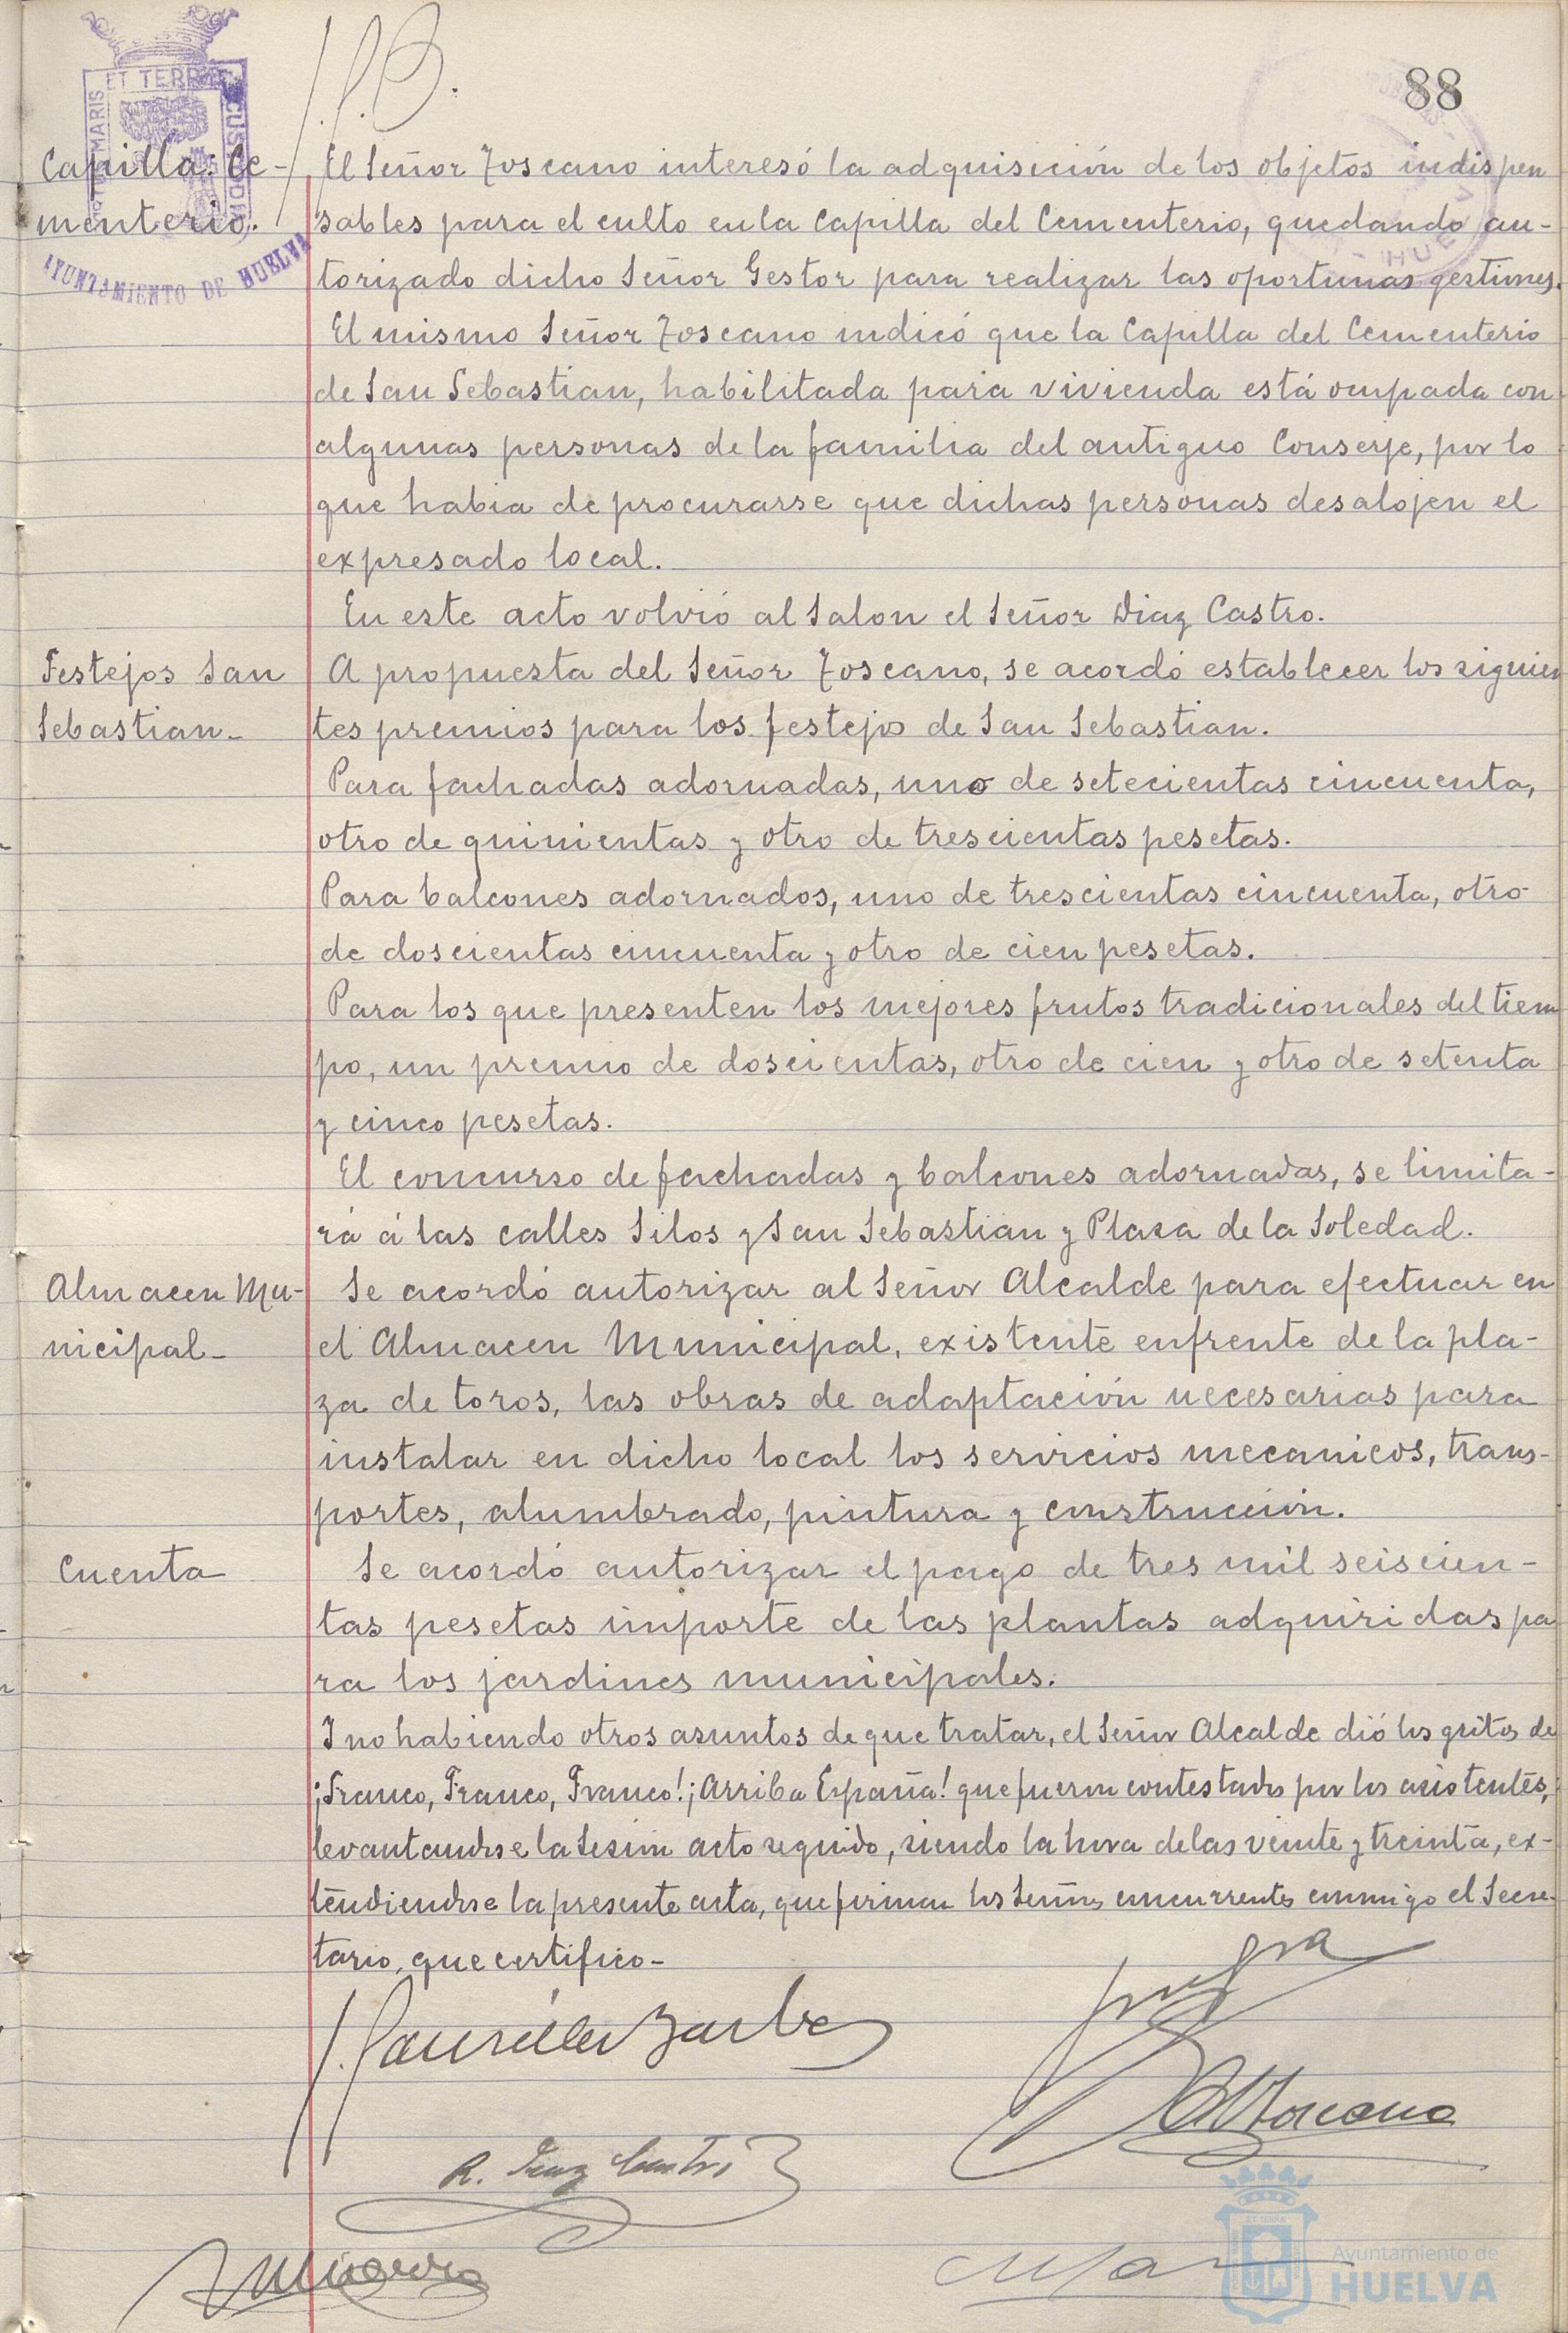 88
Capilla: Ce-
menterio.
El Señor Toscano interesó la adquisición de los objetos indispen
sables para el culto en la Capilla del Cementerio, quedando au-
torizado dicho Señor Gestor para realizar las oportunas gestiones.
El mismo Señor Toscano indicó que la Capilla del Cementerio
de San Sebastian, habilitada para vivienda está ocupada con
algunas personas de la familia del antiguo Conserje, por lo
que habia de procurarse que dichas personas desalojen el
expresado local.
En este acto volvió al Salon el Señor Diaz Castro.
Festejos San
Sebastian-
A propuesta del Señor Toscano, se acordó establecer los siguien
tes premios para los festejos de San Sebastian.
Para fachadas adornadas, uno de setecientas cincuenta,
otro de quinientas y otro de trescientas pesetas.
Para balcones adornados, uno de trescientas cincuenta, otro
de doscientas cincuenta y otro de cien pesetas.
Para los que presenten los mejores frutos tradicionales del tiem
po, un premio de doscientas, otro de cien y otro de setenta
y cinco pesetas.
El concurso de fachadas y balcones adornadas, se limita-
rá á las calles Silos y San Sebastian y Plaza de la Soledad.
Almacen Mu-
nicipal-
Se acordó autorizar al Señor Alcalde para efectuar en
el Almacen Municipal, existente enfrente de la pla-
za de toros, las obras de adaptación necesarias para
instalar en dicho local los servicios mecanicos, trans-
portes, alumbrado, pintura y construcción.
Cuenta
Se acordó autorizar el pago de tres mil seiscien-
tas pesetas importe de las plantas adquiridas pa
ra los jardines municipales.
Y no habiendo otros asuntos de que tratar, el Señor Alcalde dió los gritos de
¡Franco, Franco, Franco! ¡Arriba España! que fueron contestados por los asistentes,
levantandose la Sesión acto seguido, siendo la hora de las veinte y treinta, ex-
tendiendose la presente acta, que firman los Señores concurrentes conmigo el Secre-
tario, que certifico-
R. Diaz Castro
Toscano
ET TERRAE CUSTODIA
MARIS
AYUNTAMIENTO DE HUELVA
Ayuntamiento de
HUELVA